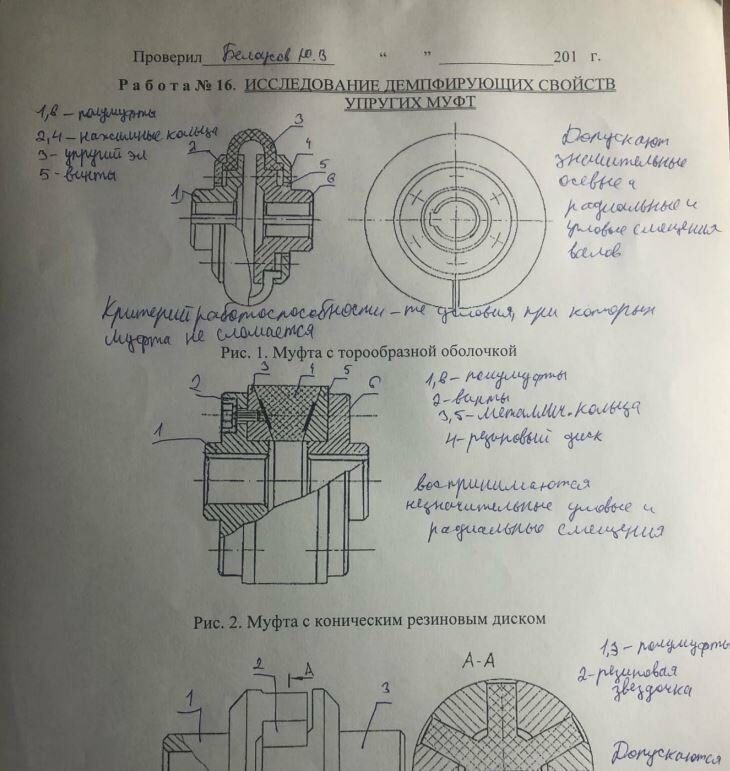 Проверил Беляков Ю.В " " 201 г.
Работа № 16. ИССЛЕДОВАНИЕ ДЕМПФИРУЮЩИХ СВОЙСТВ
УПРУГИХ МУФТ
1,6 – полумуфты
2,4 – нажимные кольца
3 – упругий эл
5 – винты
1
2
3
4
5
6
Допускают
значительные
осевые,
радиальные и
угловые смещения
валов
Критерий работоспособности – те условия, при которых
муфта не сломается
Рис. 1. Муфта с торообразной оболочкой
1
2
3
4
5
6
1,6 – полумуфты
2 – винты
3,5 – металлич. кольца
4 – резиновый диск
воспринимаются
незначительные угловые и
радиальные смещения
Рис. 2. Муфта с коническим резиновым диском
1
2
А
3
А-А
1,3 – полумуфты
2 – резиновая
звездочка
Допускаются